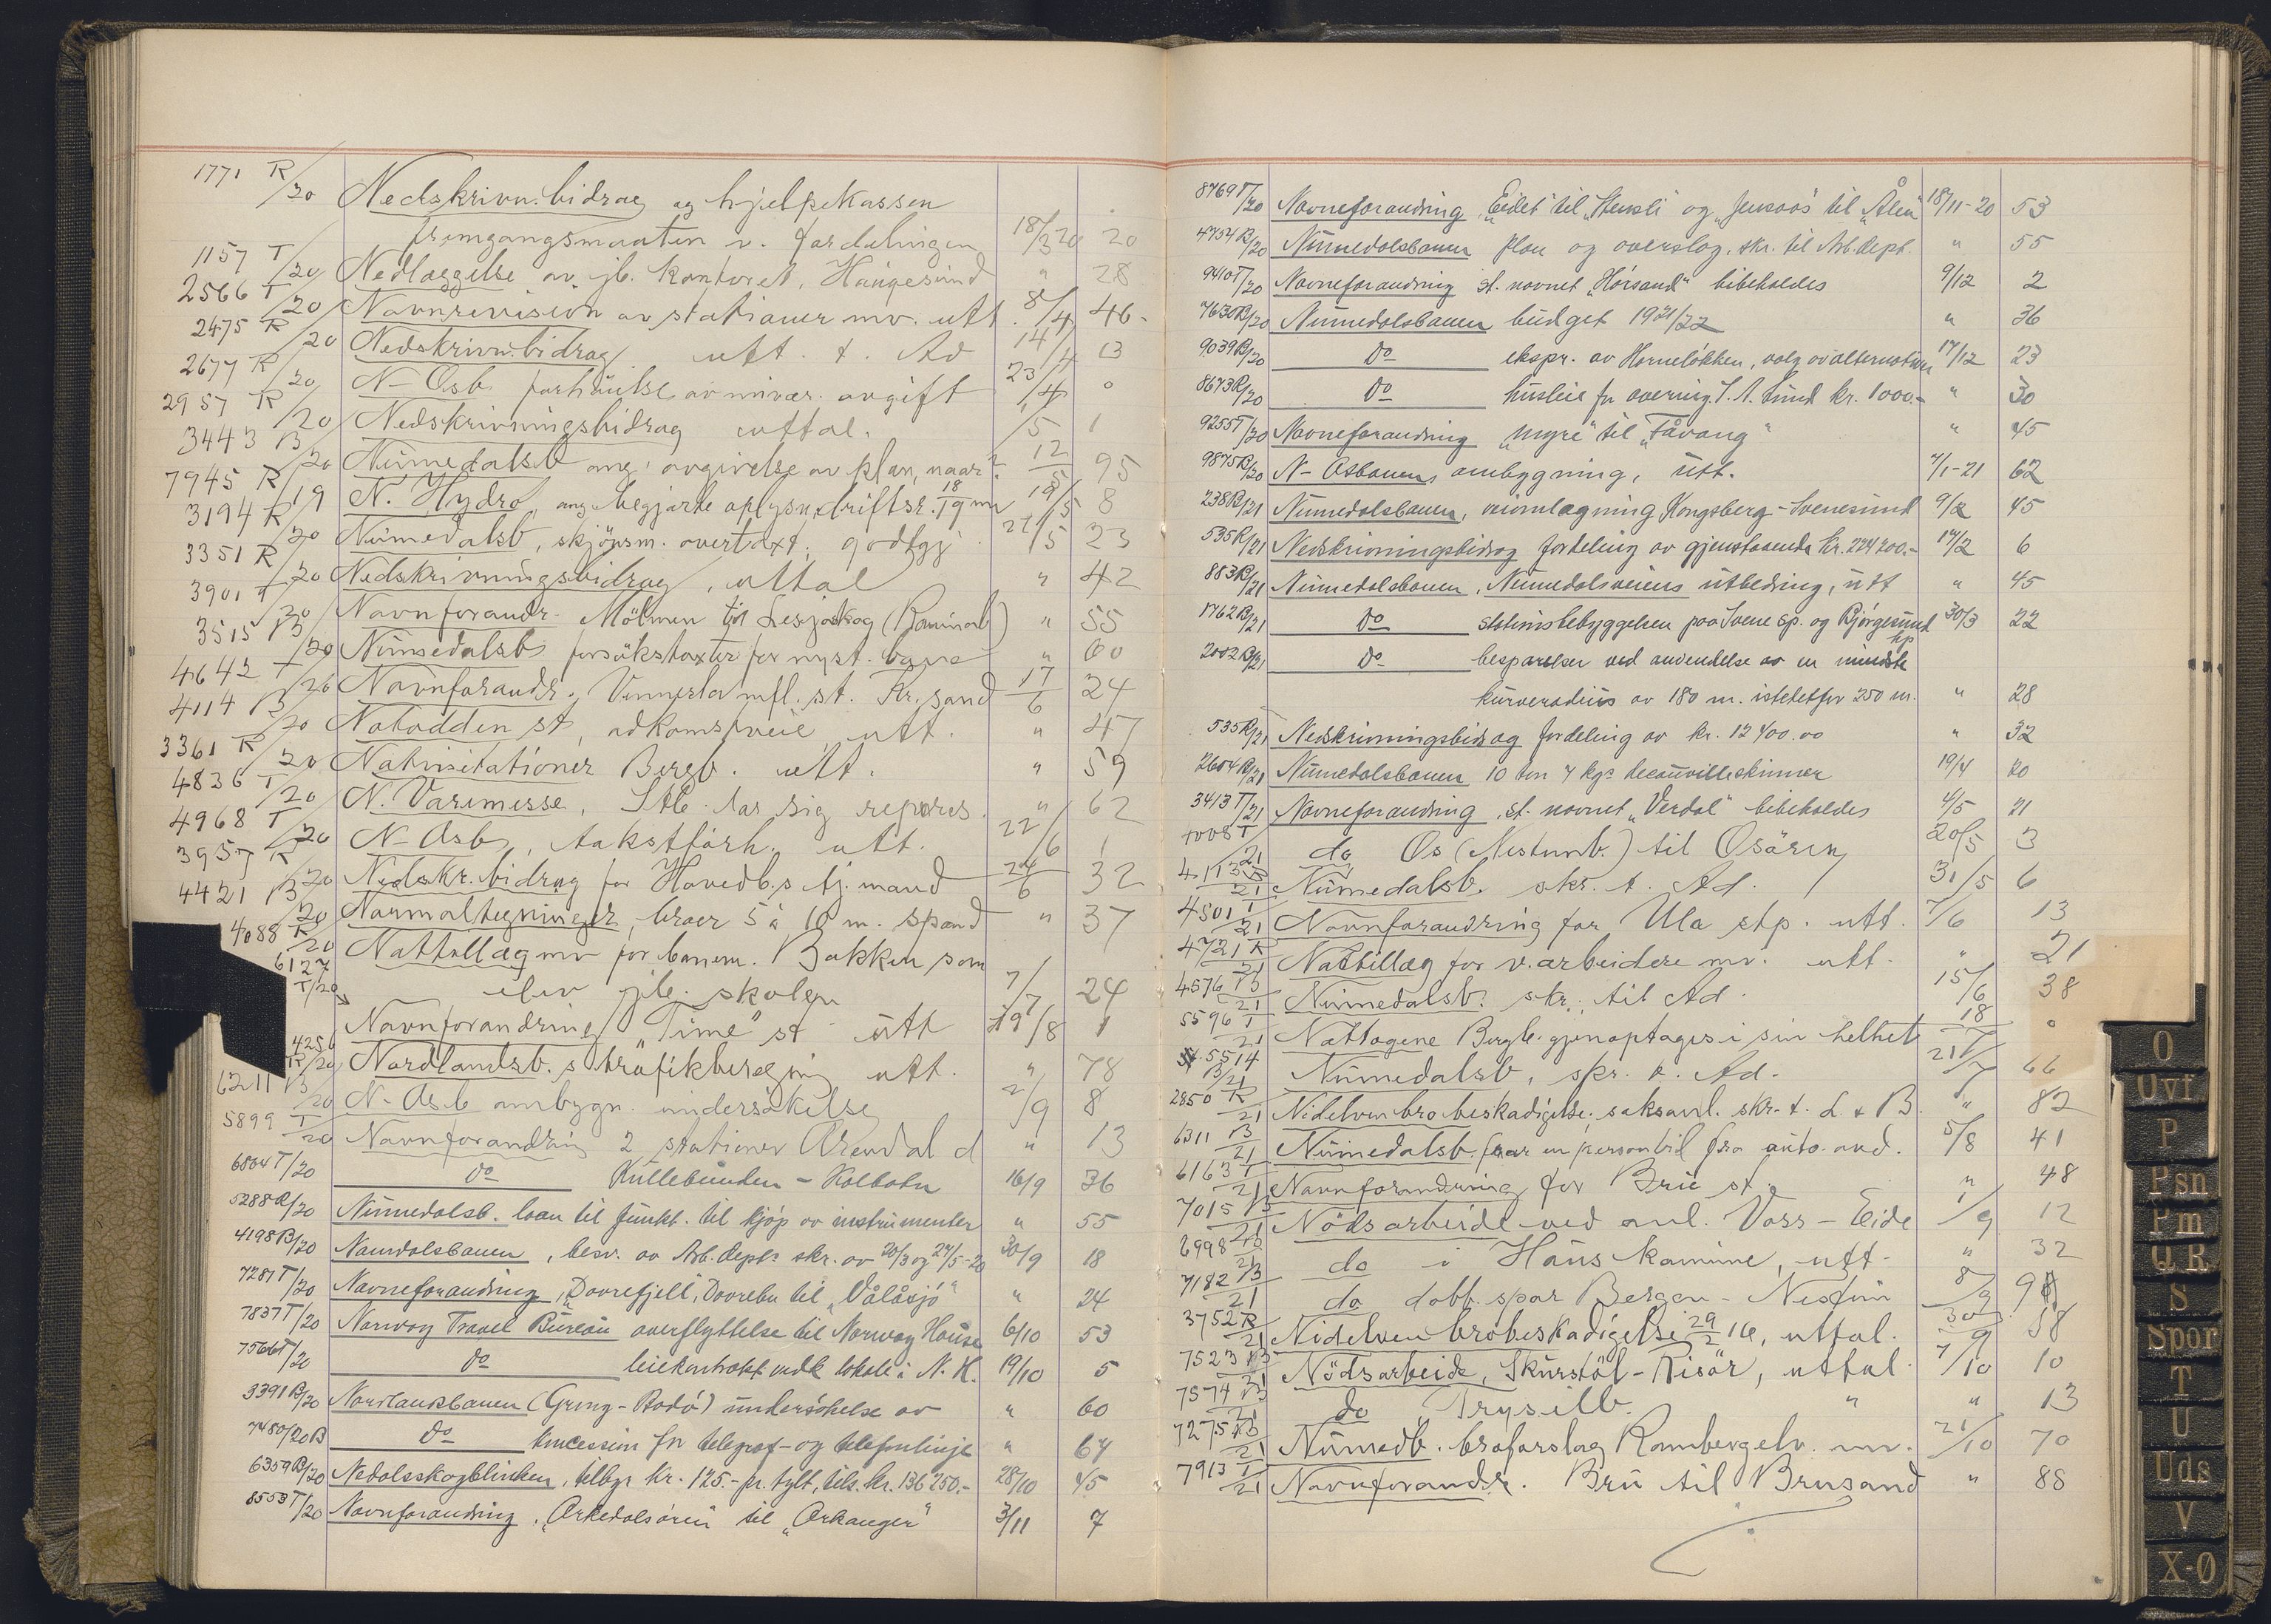 1771 R/20 Nedskrivn.bidrag og hjelpekassen
fremgangsmaaten v. fordelingen 18/3 20 20
1157 T/20 Nedlæggelse av jb. kontoret, Haugesund " 28
2566 T/20 Navnrevision av stationer mv. utt. 8/4 46
2475 R/20 Nedskrivn.bidrag utt. t. Ad 14/4 13
2677 R/20 N-Osb forhöielse av nivær. avgift 23/4 0
2957 R/20 Nedskrivningsbidrag uttal. 1/5 1
3443 B/20 Numedalsb ang. avgivelse av plan, naar? 12/5 95
7945 R/19 N. Hydro, ang. begjærte oplysn. driftsr. 18/19 mv 18/5 8
3194 R/20 Numedalsb, skjönsm. overtaxt. godtgj. 27/5 23
3351 R/20 Nedskrivningsbidrag, uttal " 42
3901 T/20 Navnforandr. Mölmen til Lesjaskog (Raumab) " 55
3515 B/20 Numedalsb forsökstaxter for nyst. bane " 60
4642 T/20 Navnforandr. Vennesla mfl. st. Kr.sand 17/6 24
4114 B/20 Notodden st, adkomstveie utt. " 47
3361 R/20 Natvisitationer Bergb. utt. " 59
4836 T/20 N. Varemesse, Stb. lar sig repræs. " 62
4968 T/20 N-Osb, takstforh. utt. 22/6 1
3957 R/20 Nedskr.bidrag for Hovedb.s tj.mænd 24/6 32
4421 B/20 Normaltegninger, broer 5 à 10 m. spand " 37
4088 R/20 Nattillæg mv for banem. Bakken som
elev jb. skolen 7/7 24
6127 T/20 Navnforandring "Time" st utt 19/8 1
4256 R/20 Nordlandsb.s trafikberegning utt. " 78
6211 B/20 N-Osb ombygn. undersökelse 2/9 8
5899 T/20 Navnforandring 2 stationer Arendal d " 13
6804 T/20 Do Kullebunden - Kolbotn 16/9 36
5288 R/20 Numedalsb. laan til funkt. til kjøp av instrumenter " 55
4198 B/20 Namdalsbanen, besv. av Arb.depts skr. av 20/3 og 27/5-20 30/9 18
7281 T/20 Navneforandring, "Dovrefjell", Dovrebu til "Vålåsjö" " 24
7837 T/20 Norway Travel Bureau overflyttelse til Norway House 6/10 53
7566 T/20 Do leiekontrakt vedk lokale i N. H. 19/10 5
3391 B/20 Nordlandsbanen (Grong-Bodø) undersøkelse av " 60
7480/20 B Do koncession for telegraf- og telefonlinje " 64
6359 B/20 Nedalsskogblinken, tilbyr kr. 125.- pr. tylt, tils. kr. 136 250.- 28/10 45
8553 T/20 Navneforandring, "Orkedalsøren" til "Orkanger" 3/11 7
8769 T/20 Navneforandring "Eidet" til "Stensli" og "Jensaas" til "Ålen" 18/11-20 53
4754 B/20 Numedalsbanen plan og overslag. skr. til Arb.dept. " 55
9410 T/20 Navneforandring st. navnet "Horsand" bibeholdes 9/12 2
7630 B/20 Numedalsbanen budget 1921/22 " 36
9039 B/20 Do ekspr. av Horneløkken, valg av alternativ 17/12 23
8673 R/20 Do husleie for overing. S. A. Lund kr. 1000.- " 30
9255 T/20 Navneforandring "Myre" til "Fåvang" " 45
9875 B/20 N-Osbanens ombygning, utt. 7/1-21 62
238 B/21 Numedalsbanen, veiomlægning Kongsberg - Svenesund 9/2 45
535 R/21 Nedskrivningsbidrag fordeling av gjenstaaende kr. 224 200.- 14/2 6
883 B/21 Numedalsbanen, Numedalsveiens utbedring, utt " 45
1762 B/21 Do stationsbebyggelsen paa Svene sp. og Bjørgesund hp 30/3 22
2002 B/21 Do besparelser ved anvendelse av en mindste
kurveradius av 180 m. istedetfor 250 m. " 28
535 R/21 Nedskrivningsbidrag fordeling av kr. 12 400.00 " 32
2604 B/21 Numedalsbanen 10 ton 7 kgs decauvilleskinner 19/4 20
3413 T/21 Navneforandring, st. navnet "Verdal" bibeholdes 4/5 21
4008 T/21 do Os (Nestunb.) til Osören 20/5 3
4113 B/21 Numedalsb. skr. t. Ad. 31/5 6
4501 T/21 Navnforandring for Ula stp. utt. 7/6 13
4721 R/21 Nattillæg for v.arbeidere mv. utt. " 21
4576 B/21 Numedalsb. skr. til Ad. 15/6 38
5596 T/21 Nattogene Bergb. gjenoptages i sin helhet 18/7 0
5514 B/21 Numedalsb, skr. t. Ad. 21/7 66
2850 R/21 Nidelven bro beskadigelse, saksanl. skr. t. L & B. " 82
6311 B/21 Numedalsb. faar en personbil fra auto. avd. 5/8 41
6163 T/21 Navnforandring for Brue st. " 48
7015 B/21 Nödsarbeide ved anl. Voss - Eide 1/9 12
6998 B/21 do i Haus kommune, utt. " 32
7182 B/21 do dobb. spor Bergen - Nestun 8/9 98
3752 R/21 Nidelven brobeskadigelse 29/2 16, uttal. 30/9 58
7523 B/21 Nödsarbeide, Skurstöl - Risör, uttal. 7/10 10
7574 B/21 do Trysilb. " " 13
7275 B/21 Numedb. broforslag Rambergelv. mv. 21/10 70
7913 T/21 Navnforandr. Bru til Brusand " 88
O
Ovf
P
Psn
Pm
Q R
S
Spor
T
U
Uds
V
X-Ø